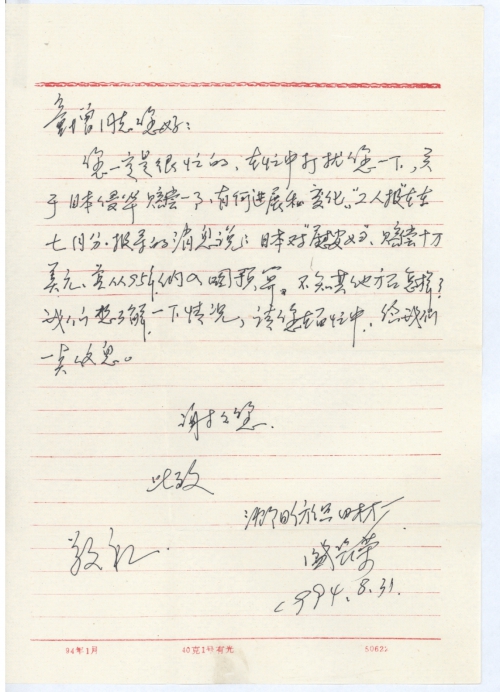 童增同志您好:
您一定是很忙的,在忙中打扰您一下,关
于日本侵华赔偿一事,有何进展和变化,“工人报”在
七月分报导的消息说:日本对“慰安妇”赔偿十万
美元,要从95年纳入国预算。不知其他方面怎样?
我们想了解一下情况,请您在百忙中,给我们
一点信息。
谢谢您.
此致
敬礼.
1994.8.31.
94年1月 40克1号有光